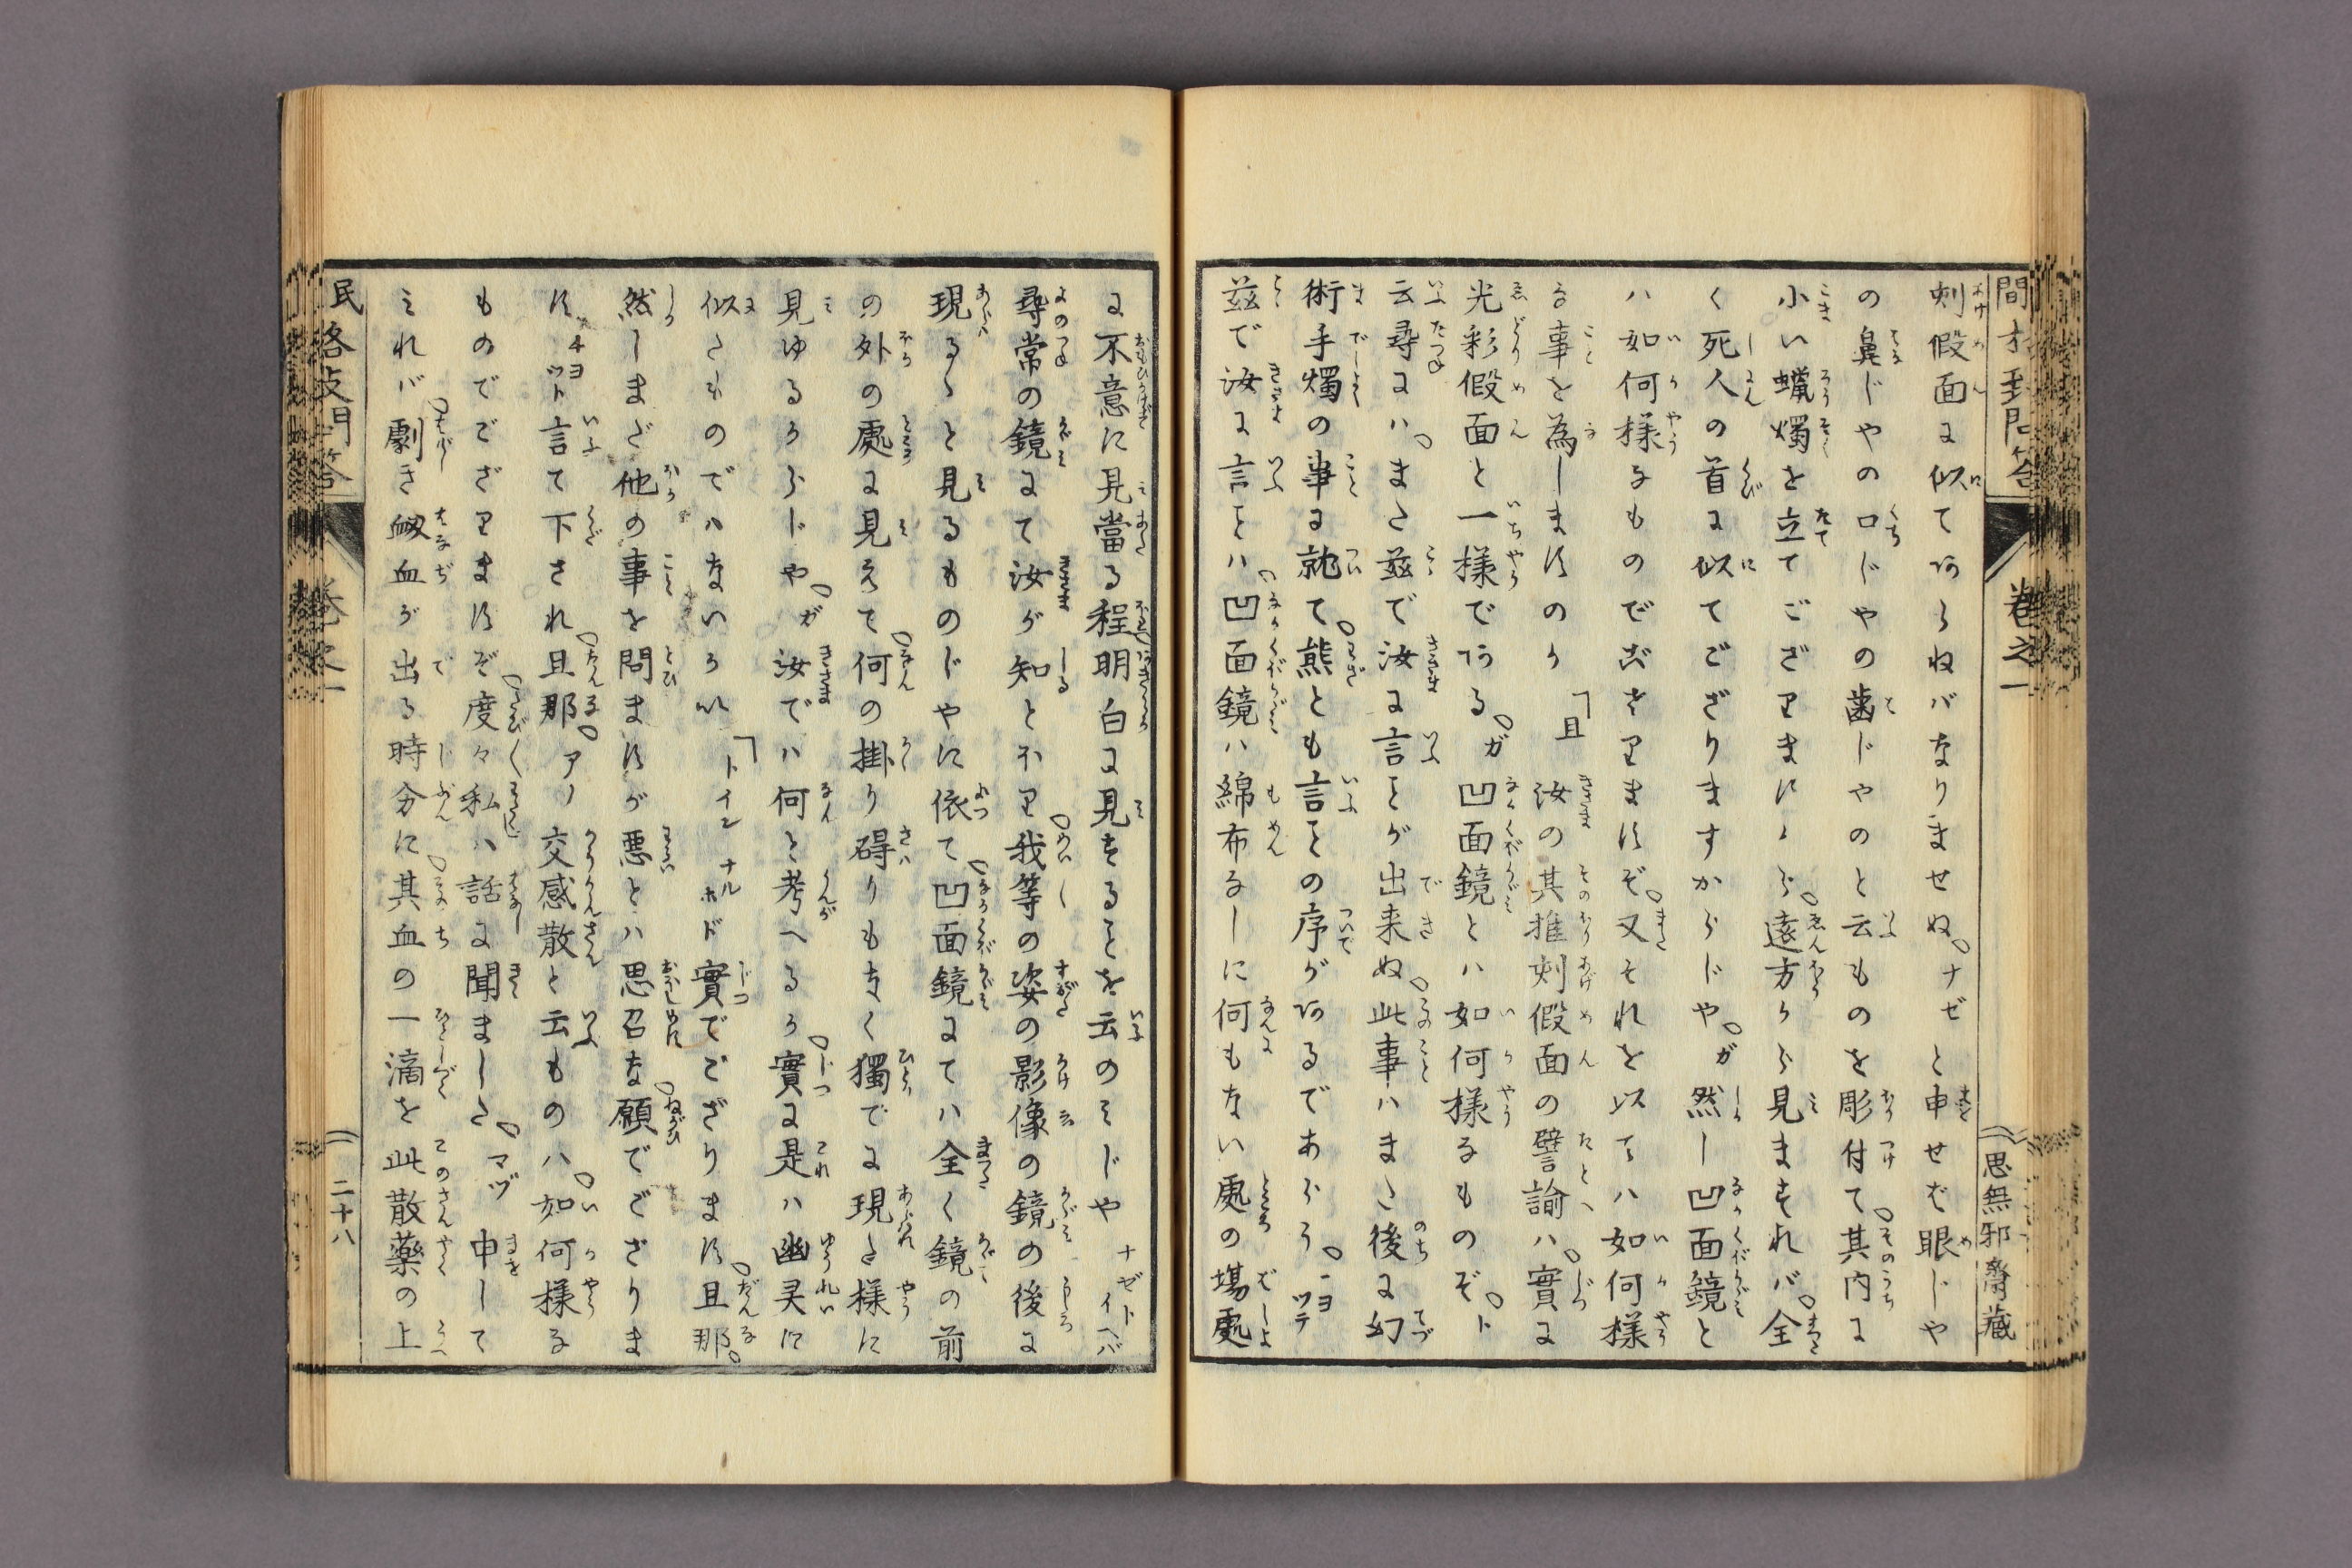 間格致問答 卷之一 思無邪齋藏
刳假面に似てあらねバなりませぬナゼと申せば眼じや
の鼻じやの口じやの歯じやのと云ものを彫付て其内に
小い蠟燭を立てござりますから遠方から見ますれバ全
く死人の首に似てござりますからじやガ然し凹面鏡と
ハ如何様なものでござりますぞ又それを以てハ如何様
な事を為しますのか「且 汝の其推刳假面の譬諭ハ實に
光彩假面と一様であるガ凹面鏡とハ如何様なものぞト
云尋にハまた茲で汝に言ヿが出来ぬ此事ハまた後に幻
術手燭の事に就て態とも言ヿの序があるであらうヨツテ
茲で汝に言ヿハ凹面鏡ハ綿布なしに何もない處の場處
に不意に見當る程明白に見せるヿを云のそじや ナゼトイヘバ
尋常の鏡にて汝が知とホり我等の姿の影像の鏡の後に
現るゝと見るものじやに依て凹面鏡にてハ全く鏡の前
の外の處に見えて何の掛り碍りもなく獨でに現た様に
見ゆるからじやガ汝でハ何と考へるか實に是ハ幽灵に
似たものでハないかい「トイン ナルホド實でござります且那
然しまだ他の事を問ますが悪とハ思召な願でござりま
すチヨツト言て下され且那アノ交感散と云ものハ如何様な
ものでござりますぞ度々私ハ話に聞ましたマヅ申して
みれバ劇き衂血が出る時分に其血の一滴を此散藥の上
民格致問答 卷之一 二十八